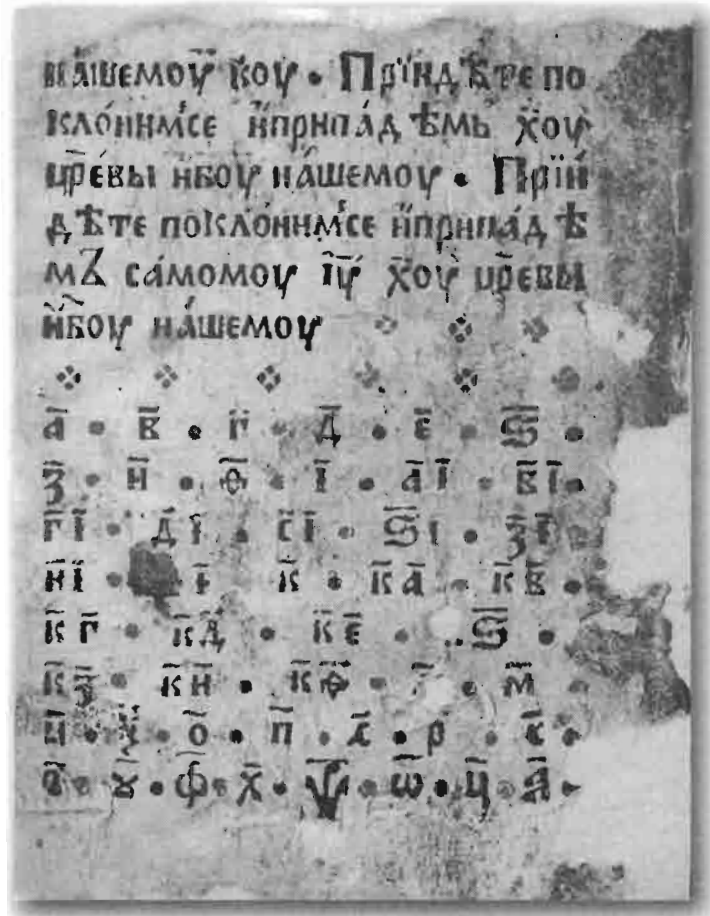 на́шемоу бг҃оу • Прїидѣте по
кло́нимсе ѝприпа́дѣмь хо҃у
цр҃е́вы ѝбг҃оу на́шемоу • Прїи
дѣте покло́нимсе ѝприпа́дѣ
мъ са́момоу і҃у хо҃у цр҃евы
ѝбг҃оу на́шемоу
а҃ • в҃ • г҃ • д҃ • е҃ • ѕ҃ •
з҃ • и҃ • ѳ҃ • і҃ • а҃і • в҃і •
г҃і • д҃і • є҃і • ѕ҃і • з҃і
и҃і • і • к҃ • к҃а • к҃в •
к҃г • к҃д • к҃е • ѕ҃ •
к҃з • к҃и • к҃ѳ • м҃
н҃ • о҃ • п҃ • р҃ • с҃ •
у҃ • ф҃ • х҃ • ѱ҃ • ѡ҃ • ц҃ • а҃ •